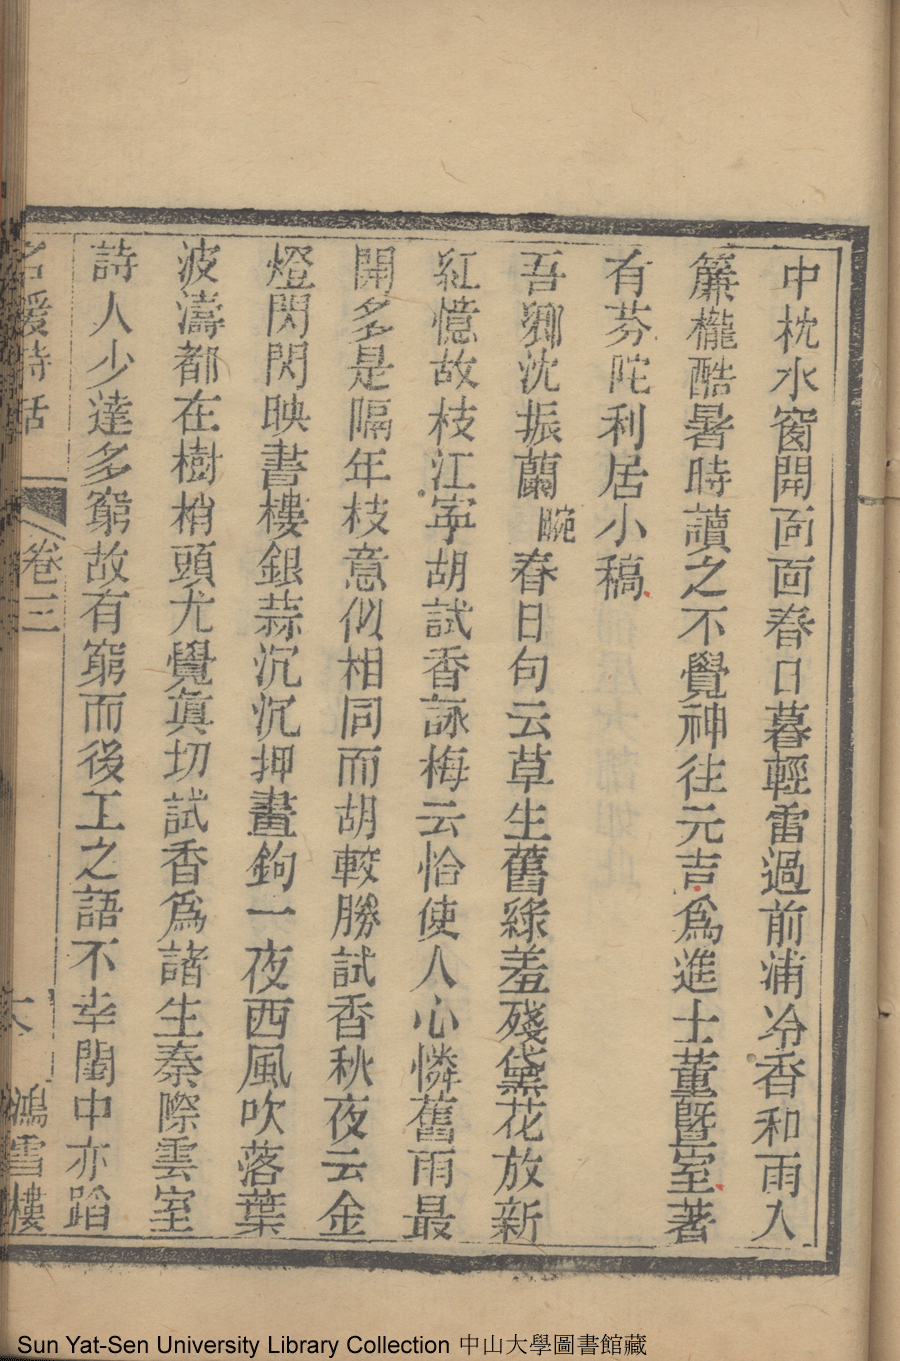 中枕水窗開面面春日暮輕雷過前浦冷香和雨入
簾櫳酷暑時讀之不覺神往元吉爲進士董曁室著
有芬陀利居小稿
吾鄉沈振蘭畹春日句云草生舊綠羞殘黛花放新
紅憶故枝江寜胡試香詠梅云恰使人心憐舊雨最
開多是隔年枝意似相同而胡較勝試香秋夜云金
燈閃閃映書樓銀蒜沉沉押畫鉤一夜西風吹落葉
波濤都在樹梢頭尤覺眞切試香爲諸生秦際雲室
詩人少達多窮故有窮而後工之語不幸閨中亦蹈
名媛詩話 卷三 鴻雪樓
Sun Yat-Sen University Library Collection 中山大學圖書館藏